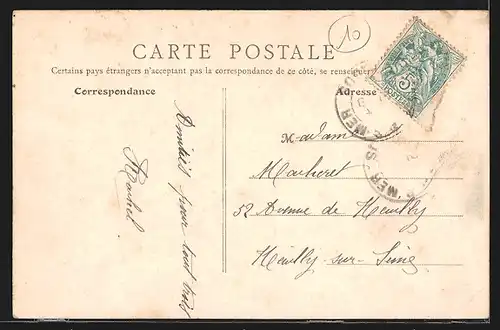 10
CARTE POSTALE
Certains pays étrangers n'acceptant pas la correspondance de ce côté, se renseigner
Correspondance
Adresse
Amitiés pour tout trois
Rachel
Madame
52 Avenue de Neuilly
Neuilly-sur-Seine
5
POSTES
S MER
S MER